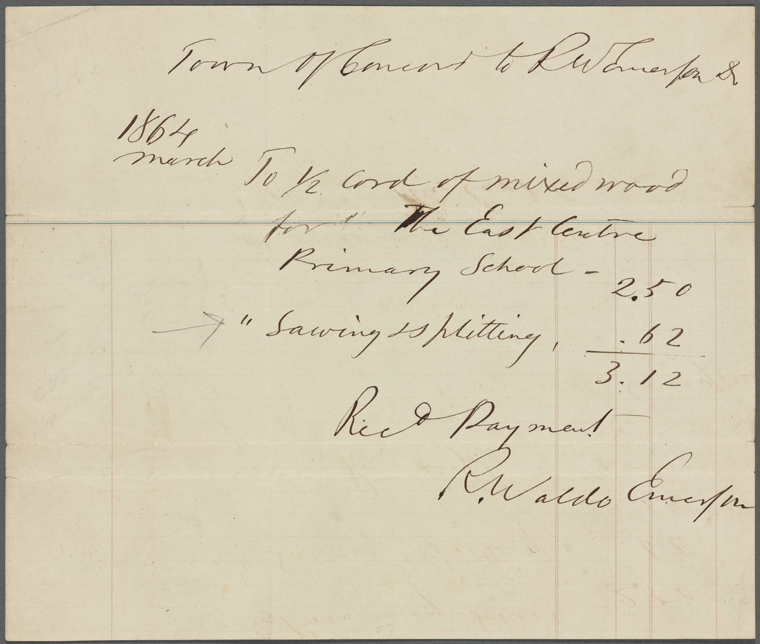 Town of Concord to R W Emerson Dr
1864
march
To 1/2 cord of mixed wood
for the East Centre
Primary School - 2.50
" Sawing & splitting, .62
3.12
Recd Payment
R. Waldo Emerson